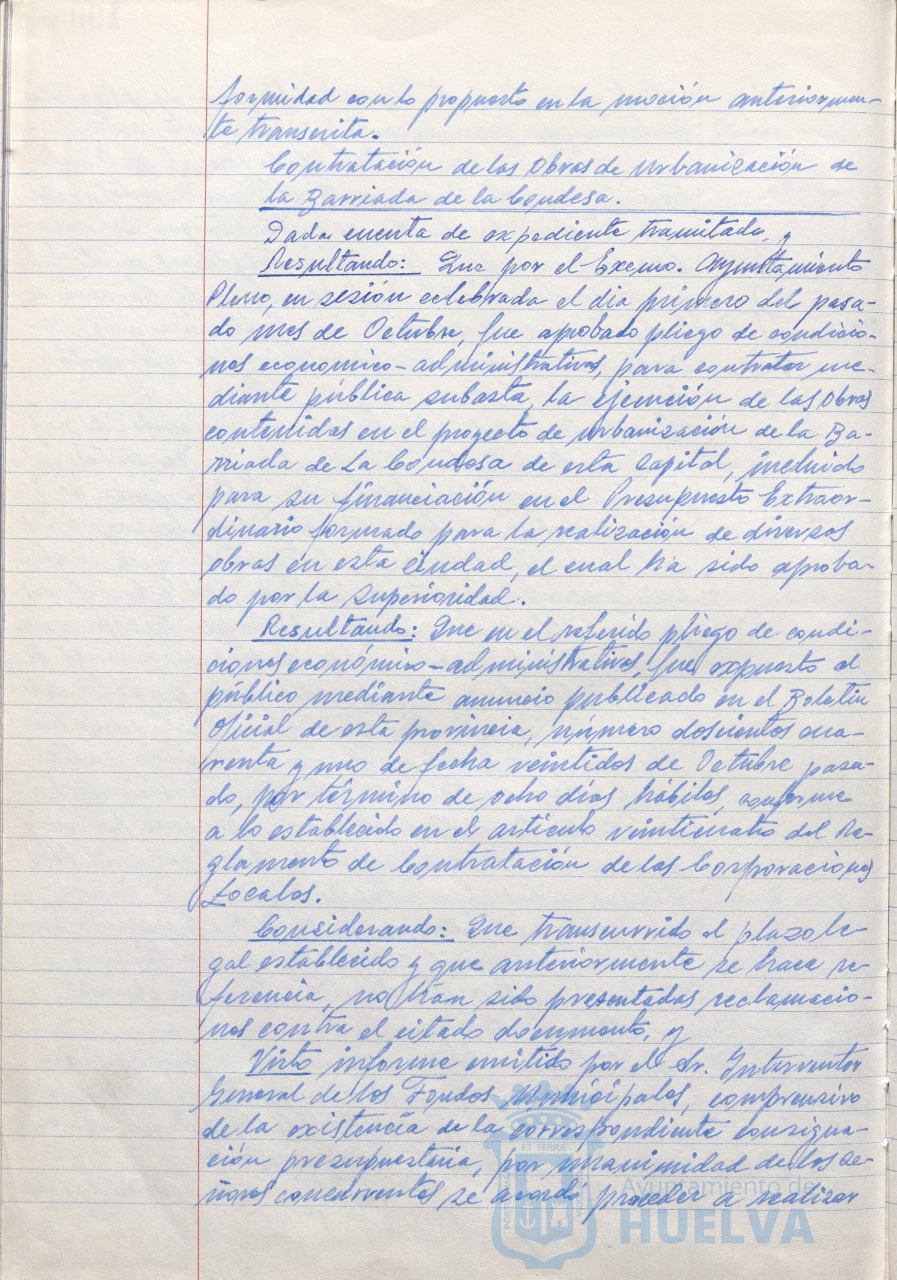 formidad con lo propuesto en la moción anteriormen-
te transcrita.
Contratación de las Obras de Urbanización de
la Barriada de la Condesa.
Dada cuenta de expediente tramitado, y
Resultando: Que por el Excmo. Ayuntamiento
Pleno, en sesión celebrada el dia primero del pasa-
do mes de Octubre, fue aprobado pliego de condicio-
nes economico-administrativas, para contratar me-
diante pública subasta, la ejecución de las Obras
contenidas en el proyecto de urbanización de la Ba-
rriada de La Condesa de esta Capital, incluido
para su financiación en el Presupuesto Extraor-
dinario formado para la realización de diversos
obras en esta ciudad, el cual ha sido aproba-
do por la Superioridad.
Resultando: Que en el referido pliego de condi-
ciones económico-administrativas, fue expuesto al
público mediante anuncio publicado en el Boletin
Oficial de esta provincia, número doscientos cua-
renta y uno de fecha veintidos de Octubre pasa-
do, por término de ocho dias hábiles, conforme
a lo establecido en el articulo veinticuatro del Re-
glamento de Contratación de las Corporaciones
Locales.
Considerando: Que transcurrido el plazo le-
gal establecido y que anteriormente se hace re-
ferencia, no han sido presentadas reclamacio-
nes contra el citado documento, y
Visto informe emitido por el Sr. Interventor
General de los Fondos Municipales, comprensivo
de la existencia de la correspondiente consigna-
ción presupuestaria, por unanimidad de los se-
ñores concurrentes se acordó proceder a realizar
Ayuntamiento de
HUELVA